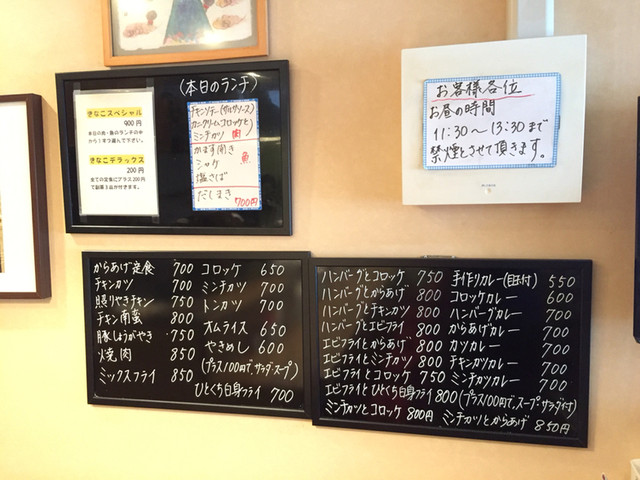 (本日のランチ)
きなこスペシャル
900円
本日の肉・魚のランチの中
から1つずつ選んで下さい。
きなこデラックス
200円
全ての定食にプラス200円
で副菜3品が付きます。
チキンソテー(サルサソース)
カニクリームコロッケと
ミンチカツ 肉
かます開き
シャケ 魚
塩さば
だしまき
700円
お客様各位
お昼の時間
11:30〜13:30まで
禁煙とさせて頂きます。
からあげ定食 700
チキンカツ 700
照りやきチキン 750
チキン南蛮 800
豚しょうがやき 750
焼肉 850
ミックスフライ 850
コロッケ 650
ミンチカツ 700
トンカツ 700
オムライス 650
やきめし 600
(プラス100円で、サラダ・スープ)
ひとくち白身フライ 700
ハンバーグとコロッケ 750
ハンバーグとからあげ 800
ハンバーグとチキンカツ 800
ハンバーグとエビフライ 800
エビフライとからあげ 800
エビフライとミンチカツ 800
エビフライとコロッケ 750
エビフライとひとくち白身フライ 800
ミンチカツとコロッケ 800円
手作りカレー(目玉付) 550
コロッケカレー 600
ハンバーグカレー 700
からあげカレー 700
カツカレー 700
チキンカツカレー 700
ミンチカツカレー 700
(プラス100円で、スープ、サラダ付)
ミンチカツとからあげ 850円